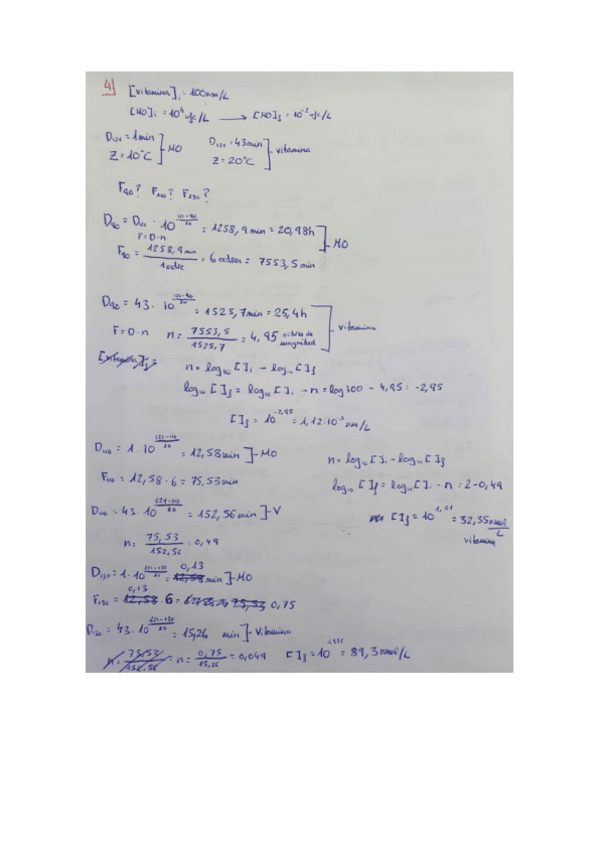 4]
[vitamina]i = 100 nm/L
[MO]i = 10^4 ufc/L → [MO]f = 10^-2 ufc/L
D121 = 1min ]MO D121 = 43min ]vitamina
Z = 10°C Z = 20°C
F90? F110? F130?
D90 = D121 · 10^(121-90/10) = 1258,9 min = 20,98h ]MO
F = D·n
F90 = 1258,9 min / 1 orden · 6 orden = 7553,5 min
D90 = 43 · 10^(121-90/20) = 1525,7min = 25,4h ]vitamina
F = D·n n = 7553,5/1525,7 = 4,95 ordenes de magnitud
[vitamina]f =
n = log10 []i - log10 []f
log10 []f = log10 []i - n = log100 - 4,95 = -2,95
[]f = 10^-2,95 = 1,12·10^-3 nm/L
D110 = 1·10^(121-110/10) = 12,58min ]MO
F110 = 12,58 · 6 = 75,53min
D110 = 43·10^(121-110/20) = 152,56min ]V
n = 75,53/152,56 = 0,49
n = log10 []i - log10 []f
log10 []f = log10 []i - n = 2-0,49
[]f = 10^1,51 = 32,35 nmol/L
vitamina
D130 = 1·10^(121-130/10) = 12,58 0,13 min ]MO
F130 = 12,58 0,13 · 6 = 75,53 0,75
D130 = 43·10^(121-130/20) = 15,26 min ]vitamina
n = 75,53/152,56 = n = 0,75/15,26 = 0,049 []f = 10^1,951 = 89,3nmol/L